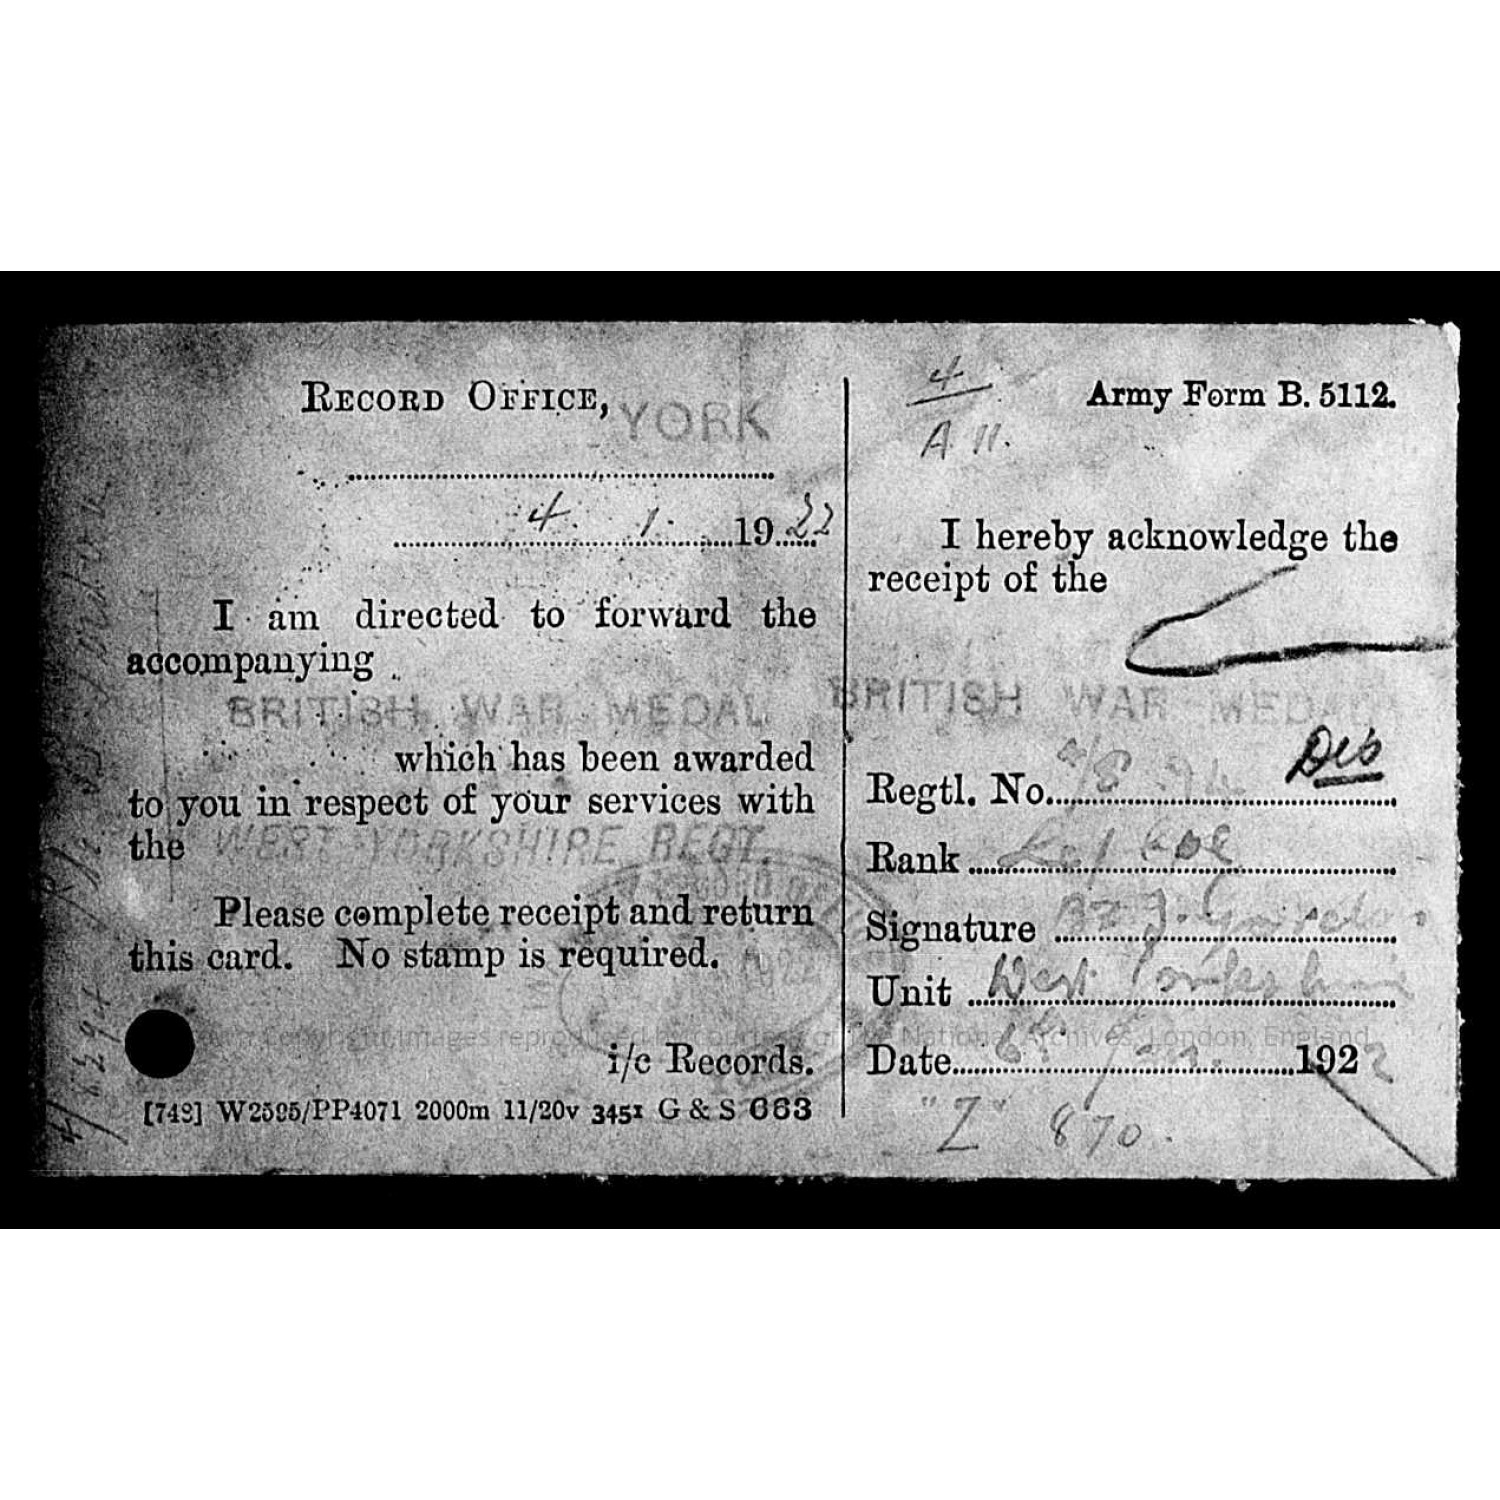 RECORD OFFICE,
YORK
4. 1. 1922
I am directed to forward the
accompanying
BRITISH WAR MEDAL
which has been awarded
to you in respect of your services with
the WEST YORKSHIRE REGT.
Please complete receipt and return
this card. No stamp is required.
1922
i/c Records.
[748] W2595/PP4071 2000m 11/20v 3451 G & S 663
4
A 11.
Army Form B. 5112.
I hereby acknowledge the
receipt of the
BRITISH WAR MEDAL
Regtl. No.
Rank
Signature
Unit West Yorkshire
Date 6th Jan. 1922
"Z" 870.
copyright images reproduced by courtesy of The National Archives, London, England